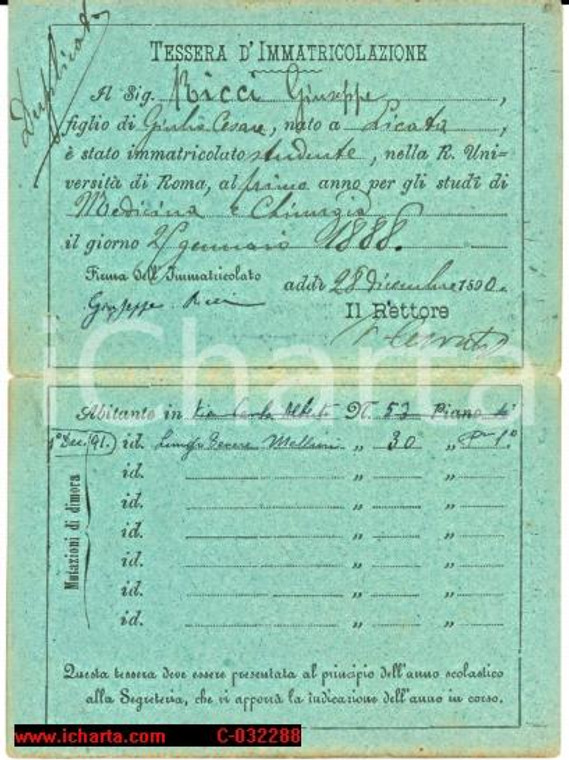 Duplicato
TESSERA D'IMMATRICOLAZIONE
Il Sig. Ricci Giuseppe,
figlio di Giulio Cesare, nato a Licata,
è stato immatricolato studente, nella R. Uni-
versità di Roma, al primo anno per gli studî di
Medicina e Chirurgia
il giorno gennaio 1888.
Firma dell'Immatricolato addì 28 Dicembre 1890.
Giuseppe Ricci Il Rettore
iCharta
Abitante in Via Carlo Alberto N. 53 Piano 4°
1° Dec. 91. id. Lungo Tevere Mellini " 30 " Pno 1°
Mutazioni di dimora
id. " "
id. " "
id. " "
id. " "
id. " "
id. " "
Questa tessera deve essere presentata al principio dell'anno scolastico
alla Segreteria, che vi apporrà la indicazione dell'anno in corso.
www.icharta.com C-032288